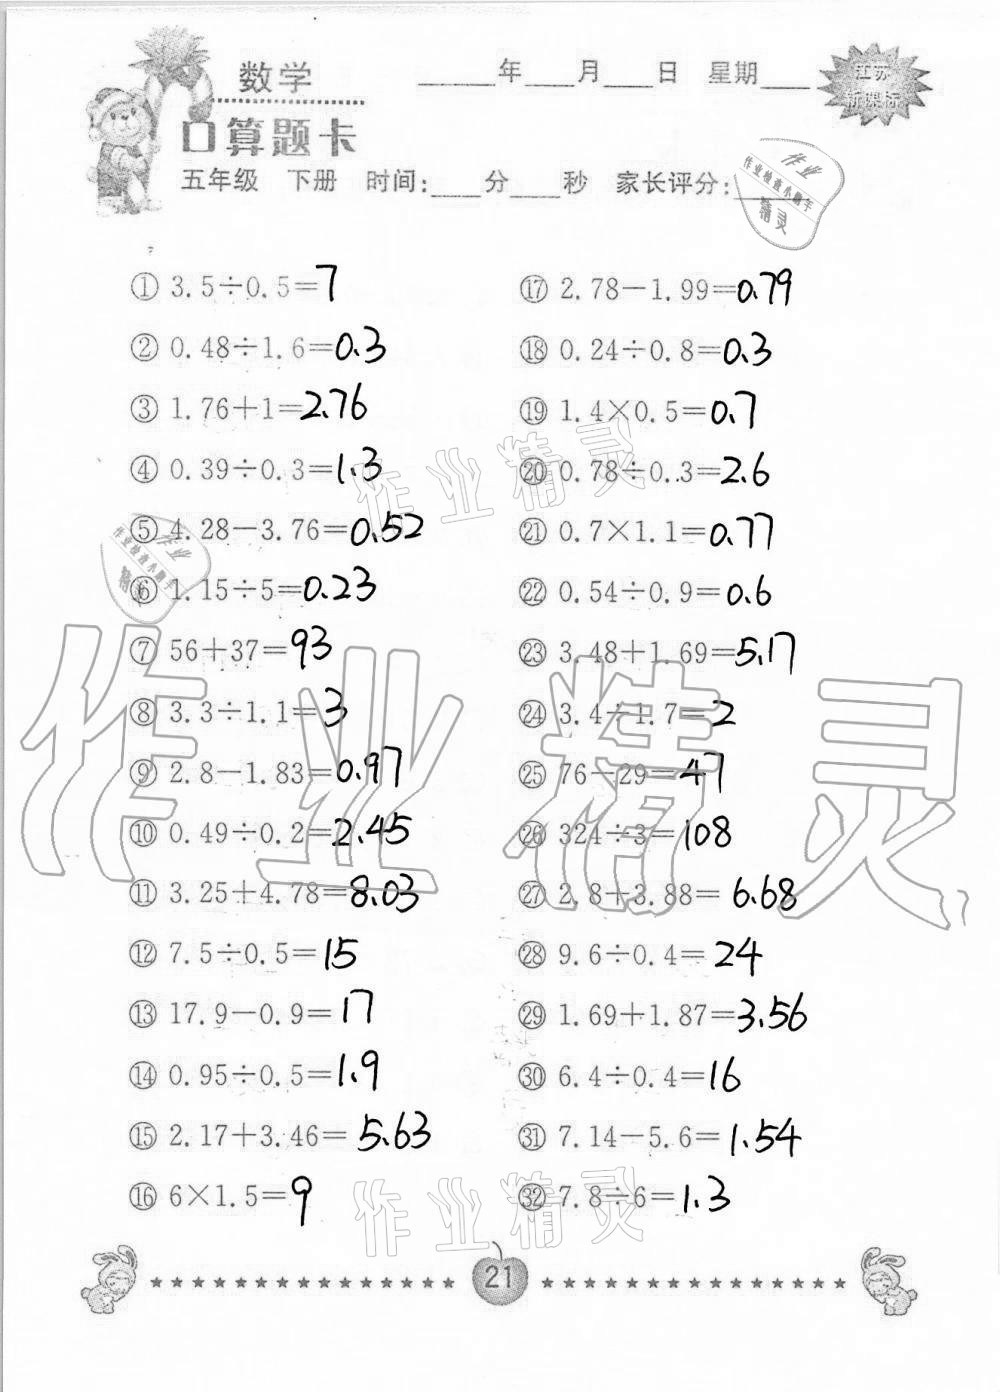 数学
____年____月____日 星期____
江苏
新课标
口算题卡
五年级 下册 时间:____分____秒 家长评分:____
作业
作业检查小助手
精灵
① 3.5÷0.5=7
② 0.48÷1.6=0.3
③ 1.76+1=2.76
④ 0.39÷0.3=1.3
⑤ 4.28-3.76=0.52
⑥ 1.15÷5=0.23
⑦ 56+37=93
⑧ 3.3÷1.1=3
⑨ 2.8-1.83=0.97
⑩ 0.49÷0.2=2.45
⑪ 3.25+4.78=8.03
⑫ 7.5÷0.5=15
⑬ 17.9-0.9=17
⑭ 0.95÷0.5=1.9
⑮ 2.17+3.46=5.63
⑯ 6×1.5=9
⑰ 2.78-1.99=0.79
⑱ 0.24÷0.8=0.3
⑲ 1.4×0.5=0.7
⑳ 0.78÷0.3=2.6
㉑ 0.7×1.1=0.77
㉒ 0.54÷0.9=0.6
㉓ 3.48+1.69=5.17
㉔ 3.4÷1.7=2
㉕ 76-29=47
㉖ 324÷3=108
㉗ 2.8+3.88=6.68
㉘ 9.6÷0.4=24
㉙ 1.69+1.87=3.56
㉚ 6.4÷0.4=16
㉛ 7.14-5.6=1.54
㉜ 7.8÷6=1.3
作业精灵
作业
作业检查小助手
精灵
作业精灵
作业精灵
21